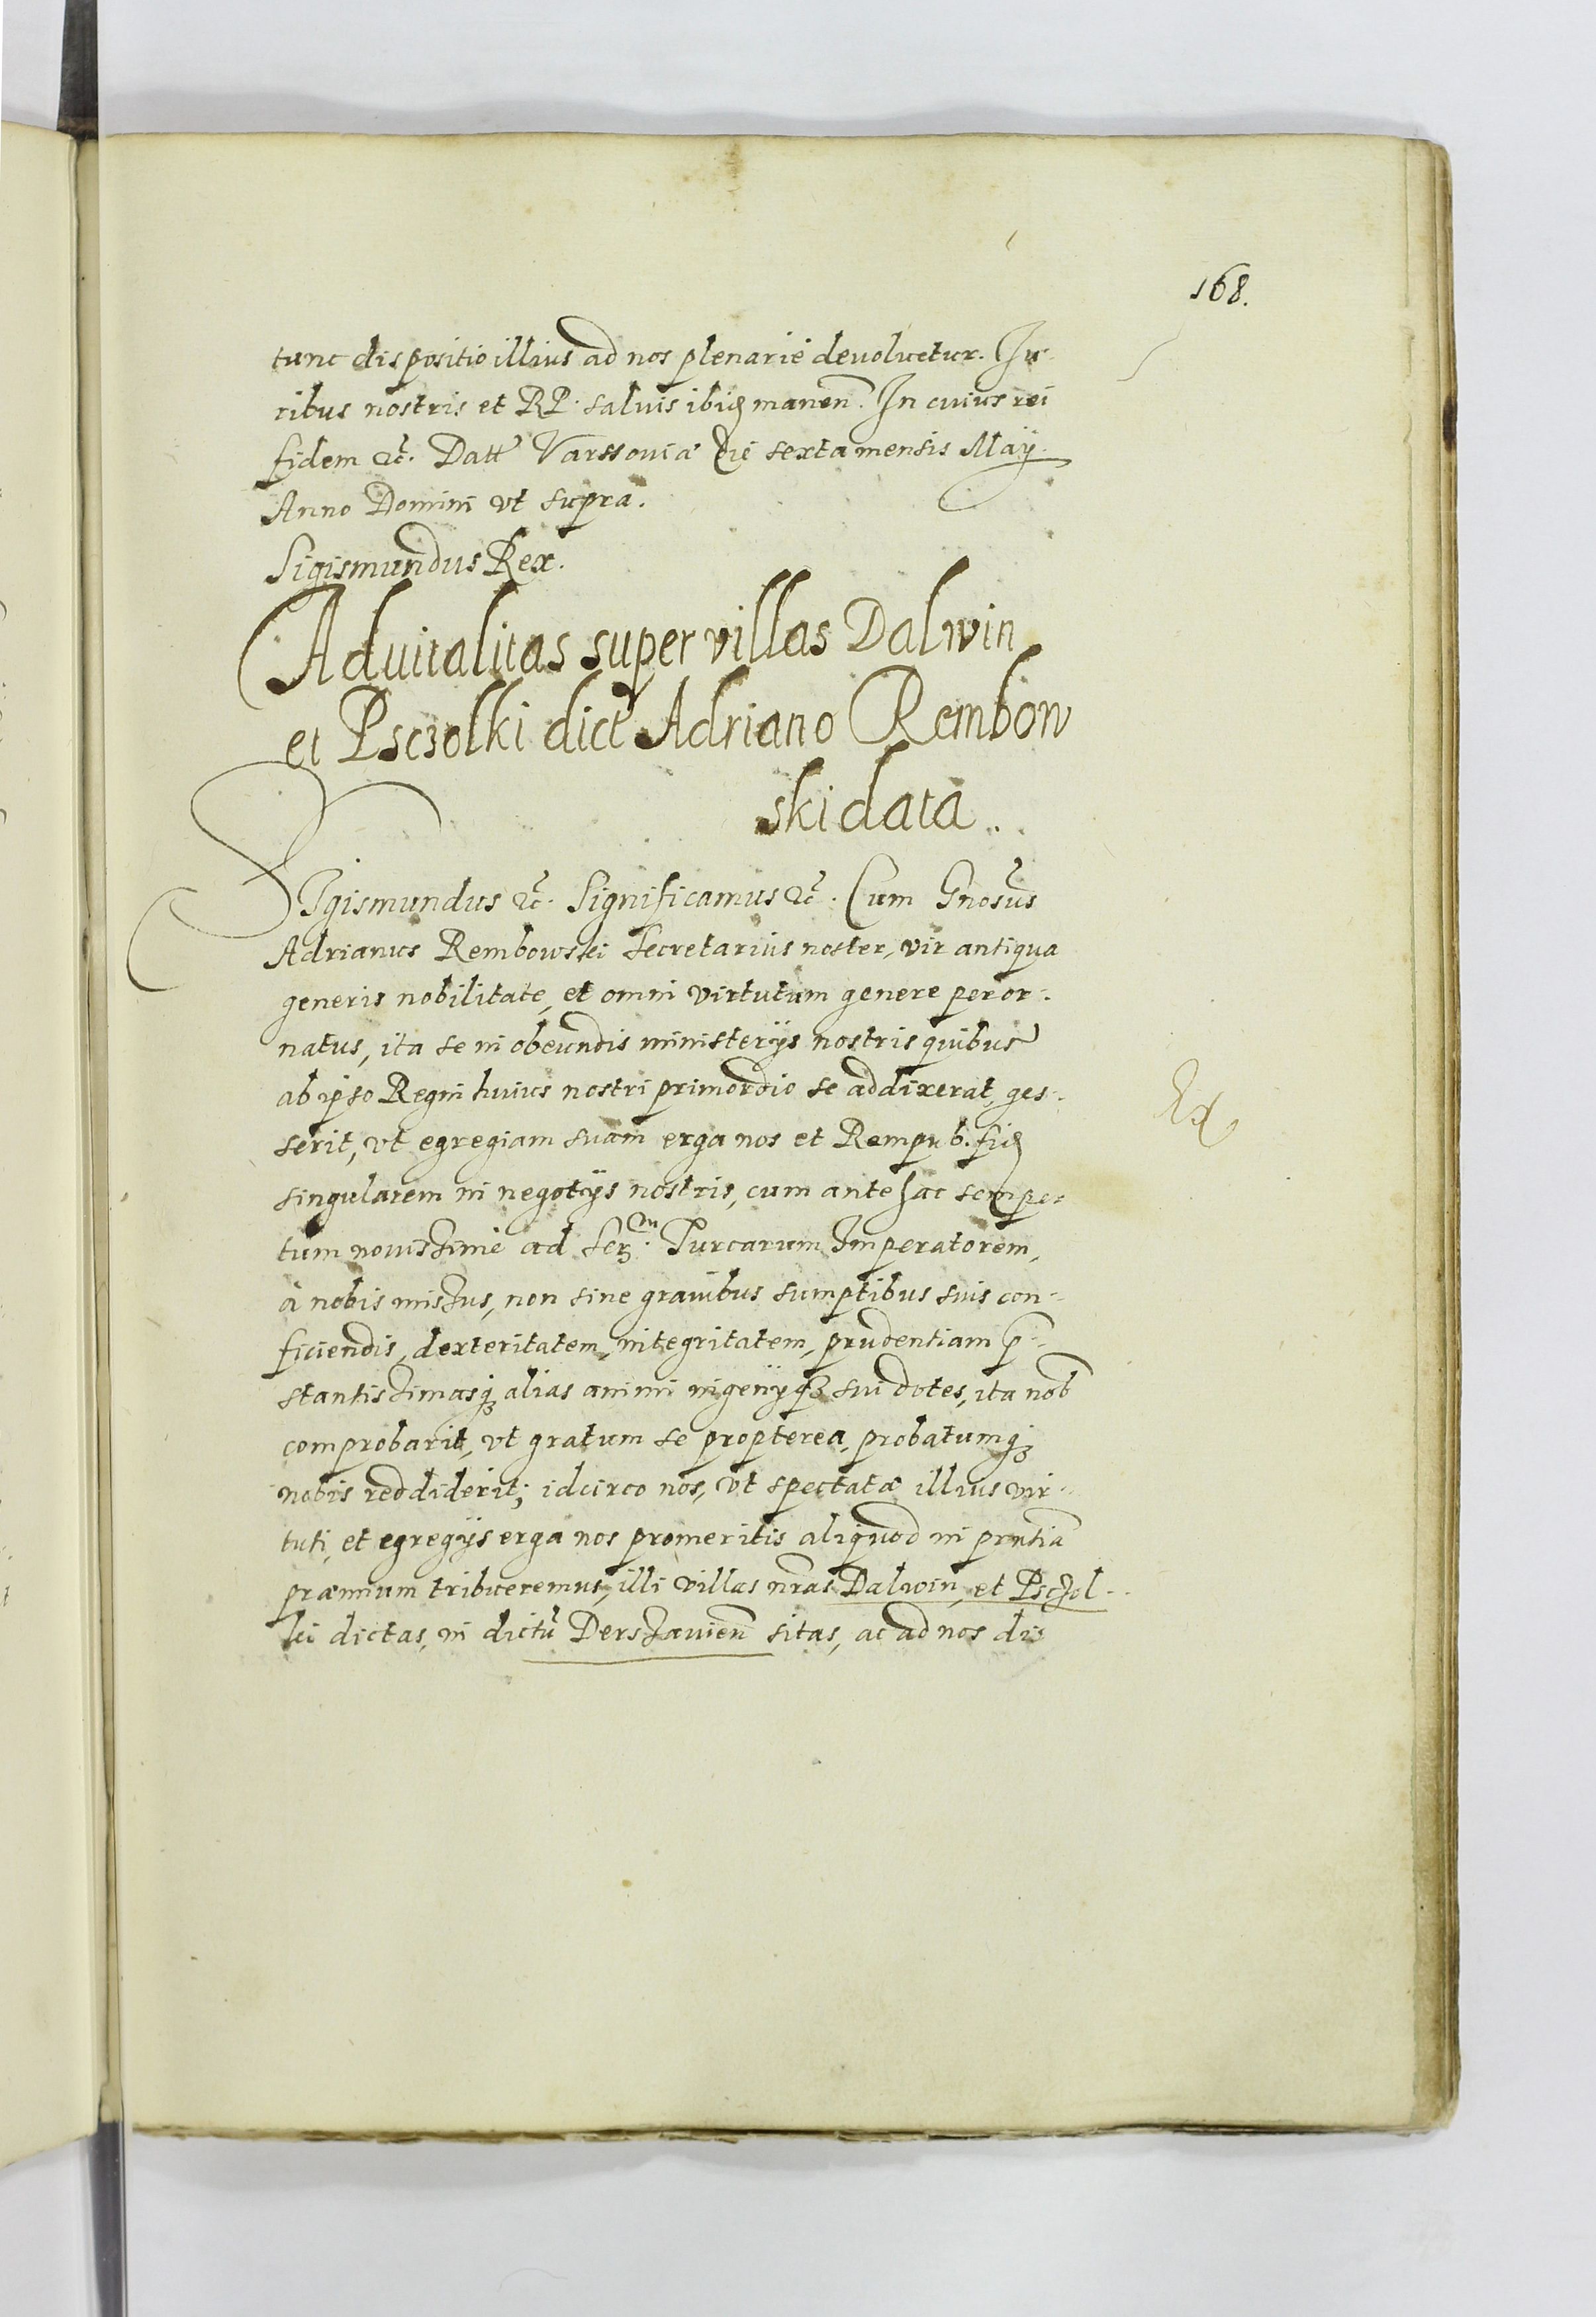 168.
tunc dispositio illius ad nos plenarie deuoluetur. Iu-
ribus nostris et RP. saluis ibid manen. In cuius rei
fidem &c. Datt Varssouiæ die sexta mensis Maÿ
Anno Domini vt supra.
Sigismundus Rex.
Aduitalitas super villas Dalwin
et Psczolki dict Adriano Rembow
ski data.
SIgismundus &c. Significamus &c. Cum Gnosus
Adrianus Rembowski Secretarius noster, vir antiqua
generis nobilitate, et omni virtutum genere peror-
natus, ita se in obeundis ministerÿs nostris quibus
ab ipso Regni huius nostri primordio se addixerat, ges-
serit, vt egregiam suam erga nos et Rempub. fid
Ex
singularem in negotÿs nostris, cum ante hac semper
tum nouissime ad Ser. Turcarum Imperatorem,
à nobis missus, non sine grauibus sumptibus suis con-
ficiendis, dexteritatem, integritatem, prudentiam p-
stantissimasq alias animi ingenÿq sui dotes, ita nob
comprobarit, vt gratum se propterea, probatumq
nobis reddiderit; idcirco nos, vt spectatæ illius vir-
tuti, et egregÿs erga nos promeritis aliquod in prntia
præmium tribueremus, illi villas nras Dalwin, et Psczol-
ki dictas, in dictu Derszauien sitas, ac ad nos dis